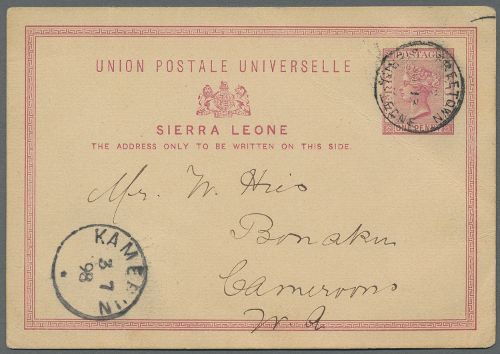 UNION POSTALE UNIVERSELLE
SIERRA LEONE
THE ADDRESS ONLY TO BE WRITTEN ON THIS SIDE.
POSTAGE
ONE PENNY
FREETOWN
SIERRA LEONE
Mr. W. Hies
Bonaku
Cameroons
W. A
KAMERUN
3 7
98